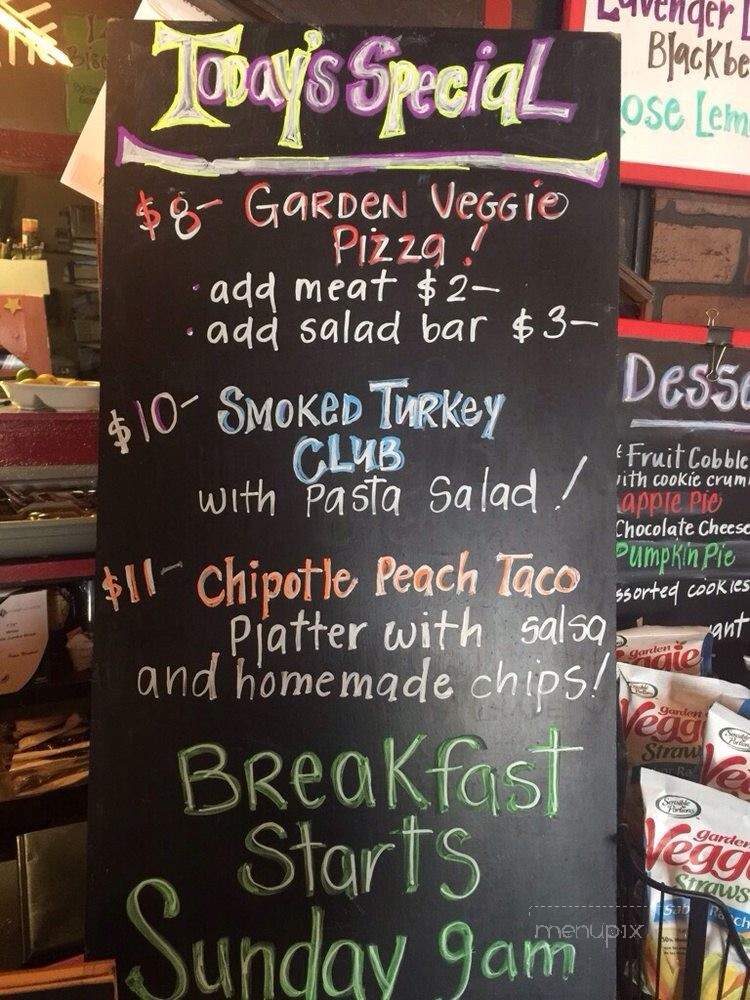 Today's Special
$8- GARDEN VEGGIE
Pizza!
• add meat $2-
• add salad bar $3-
$10- SMOKED TURKEY
CLUB
with Pasta Salad!
$11- Chipotle Peach Taco
Platter with salsa
and homemade chips!
BREAKfast
Starts
Sunday 9am
Lavender
Blackbe
ose Lem
Desse
Fruit Cobble
ith cookie crum
apple Pie
Chocolate Cheese
Pumpkin Pie
ssorted cookies
ant
garden
Veggie
Sensible Portions
garden
Vegg
Straw
Sensible Portions
Ve
Sensible Portions
garden
Vegg
Straws
Ranch
menupix